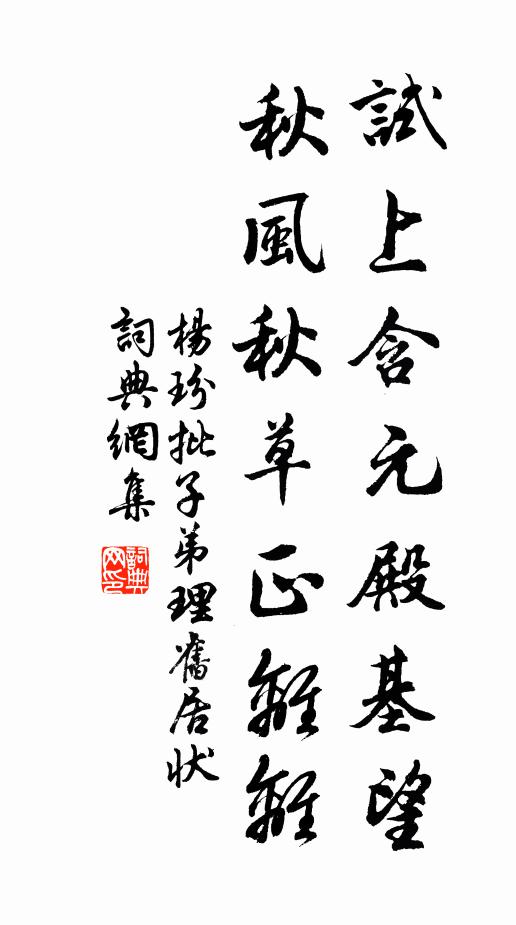 試上含元殿基望
秋風秋草正離離
楊玢批子弟理舊居狀
詞典網集
詞典網印